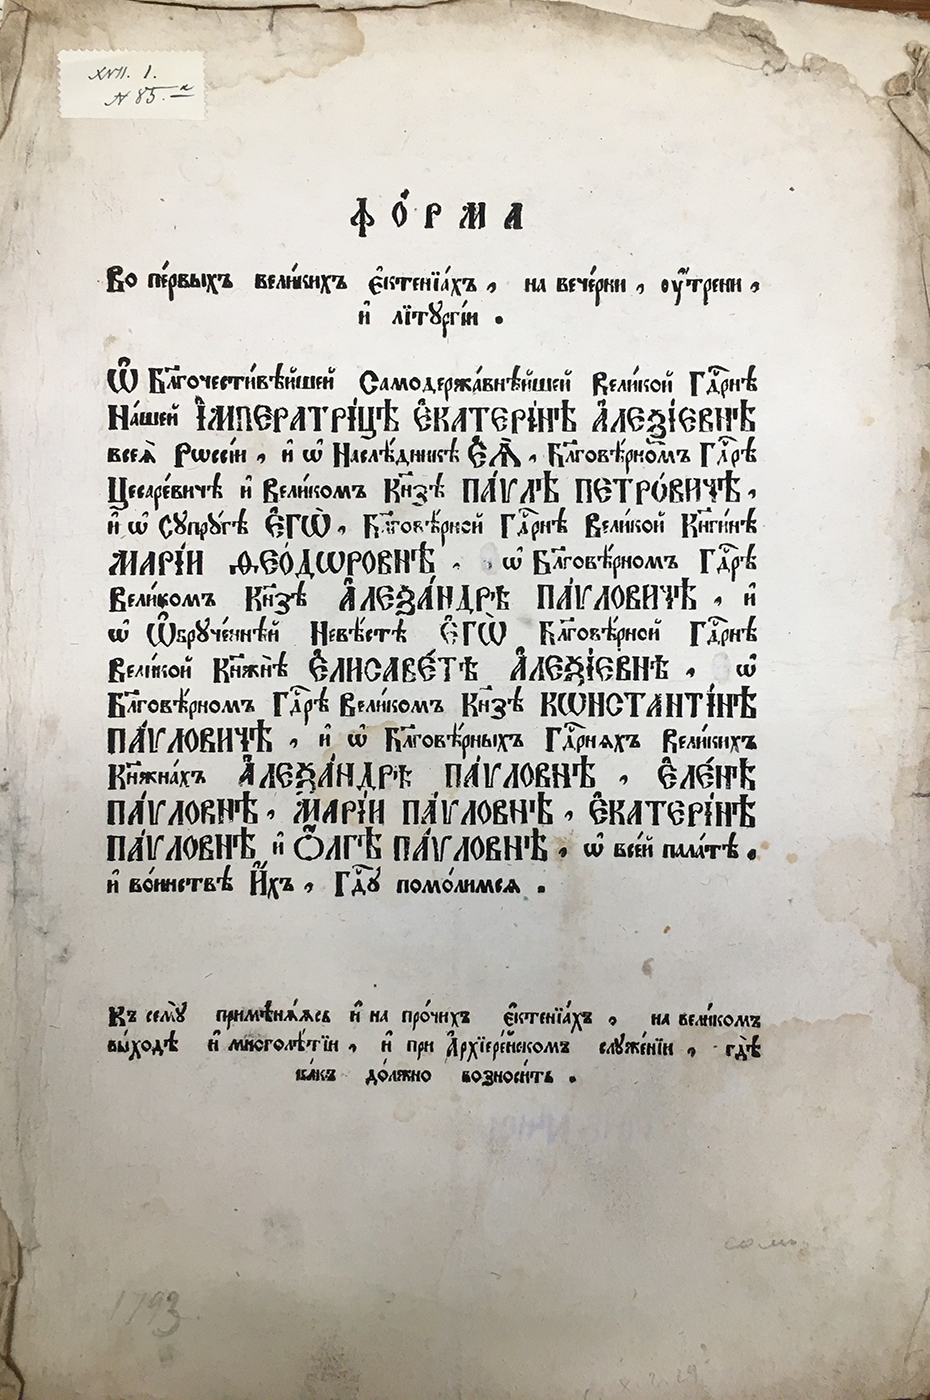 XVII. 1.
№ 85.ᵃ
Фо́рма
Во пе́рвыхъ вели́кихъ є҆ктенїа́хъ, на вече́рни, ᲂу҆́трени,
и҆ лїтꙋргі́и.
Ѽ Бл҃гочести́вѣйшей Самодержа́внѣйшей Вели́кой Гдⷭ҇рнѣ
На́шей І҆МПЕРАТРІ́ЦѢ Є҆КАТЕРІ́НѢ А҆ЛЕѮІ́ЕВНѢ
всеѧ̀ Рѡссі́и, и҆ ѽ Наслѣ́дникѣ Є҆Ѧ̀, Бл҃говѣ́рномъ Гдⷭ҇рѣ
Цесаре́вичѣ и҆ Вели́комъ Кн҃зѣ ПА́ѴЛѢ ПЕТРО́ВИЧѢ,
и҆ ѽ Сꙋпрꙋ́гѣ Є҆ГѠ̀, Бл҃говѣ́рной Гдⷭ҇рнѣ Вели́кой Кн҃ги́нѣ
МАРІ́И Ѳ҆ЕО́ДѠРОВНѢ, ѽ Бл҃говѣ́рномъ Гдⷭ҇рѣ
Вели́комъ Кн҃зѣ А҆ЛЕѮА́НДРѢ ПА́ѴЛОВИЧѢ, и҆
ѽ Ѡ҆брꙋче́ннѣй Невѣ́стѣ Є҆ГѠ̀ Бл҃говѣ́рной Гдⷭ҇рнѣ
Вели́кой Кн҃жнѣ̀ Є҆ЛИСАВЕ́ТѢ А҆ЛЕѮІ́ЕВНѢ, ѽ
Бл҃говѣ́рномъ Гдⷭ҇рѣ Вели́комъ Кн҃зѣ КѠНСТАНТІ́НѢ
ПА́ѴЛОВИЧѢ, и҆ ѽ Бл҃говѣ́рныхъ Гдⷭ҇рнѧхъ Вели́кихъ
Кн҃жна́хъ А҆ЛЕѮА́НДРѢ ПА́ѴЛОВНѢ, Є҆ЛЕ́НѢ
ПА́ѴЛОВНѢ, МАРІ́И ПА́ѴЛОВНѢ, Є҆КАТЕРІ́НѢ
ПА́ѴЛОВНѢ и҆ Ѻ҆́ЛГѢ ПА́ѴЛОВНѢ, ѽ все́й пала́тѣ.
и҆ во́инствѣ И҆́хъ, Гдⷭ҇ꙋ помо́лимсѧ.
Къ семꙋ̀ примѣнѧ́ѧсь и҆ на про́чихъ є҆ктенїа́хъ, на вели́комъ
вы́ходѣ и҆ многолѣ́тїи, и҆ при А҆рхїере́йскомъ слꙋже́нїи, гдѣ̀
ка́къ до́лжно возноси́ть.
1793